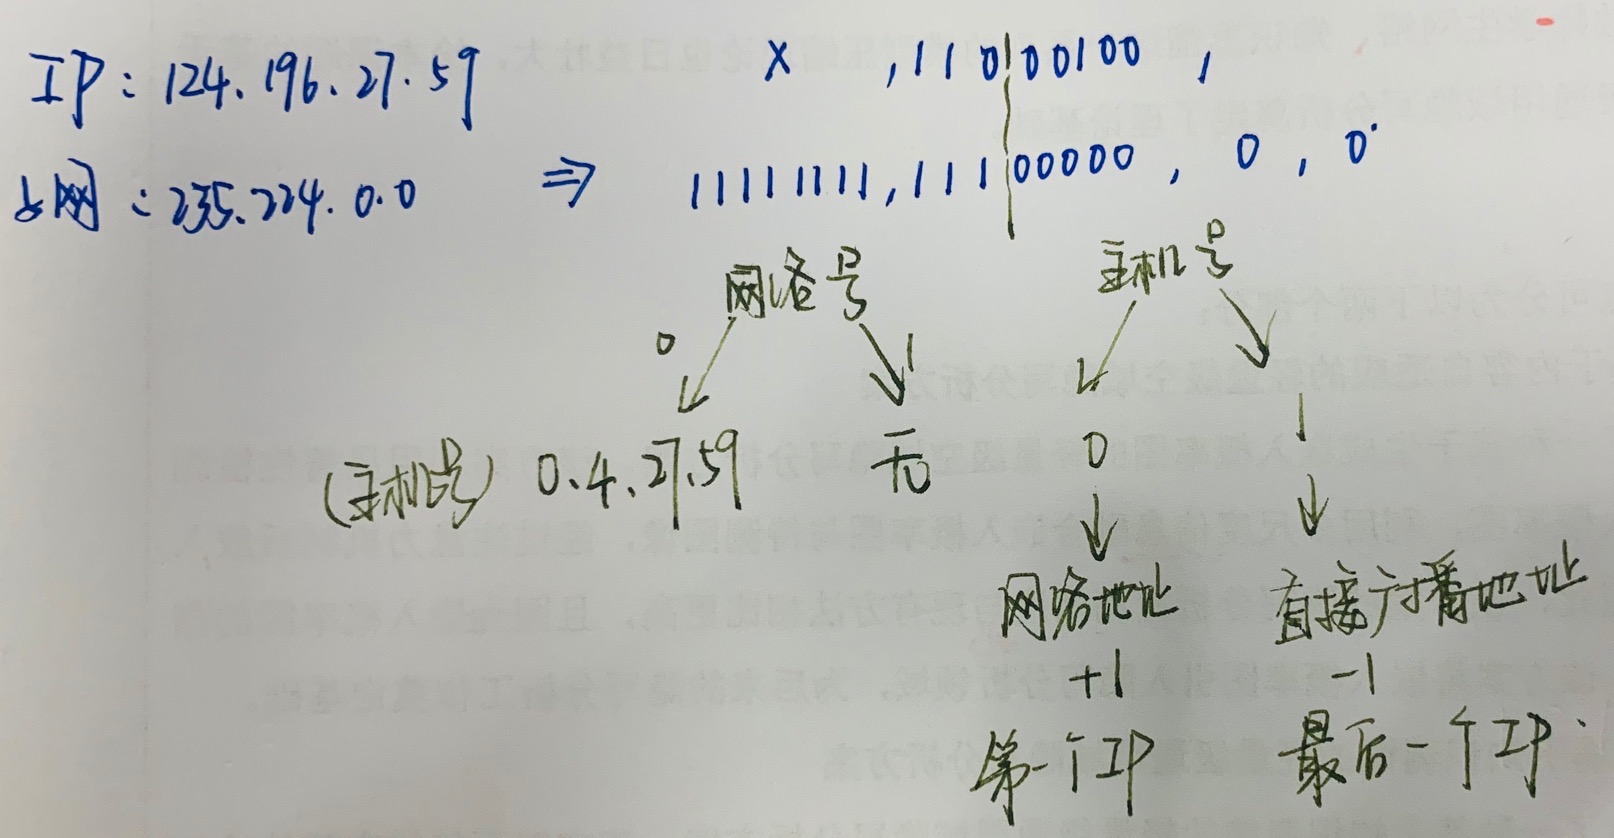 IP：124.196.27.59 X ,110 00100 ,
子网：235.224.0.0 ⇒ 11111111,111 00000 , 0 , 0
网络号 主机号
0 1
(主机号) 0.4.27.59 无 0 1
网络地址 直接广播地址
+1 -1
第一个IP 最后一个IP